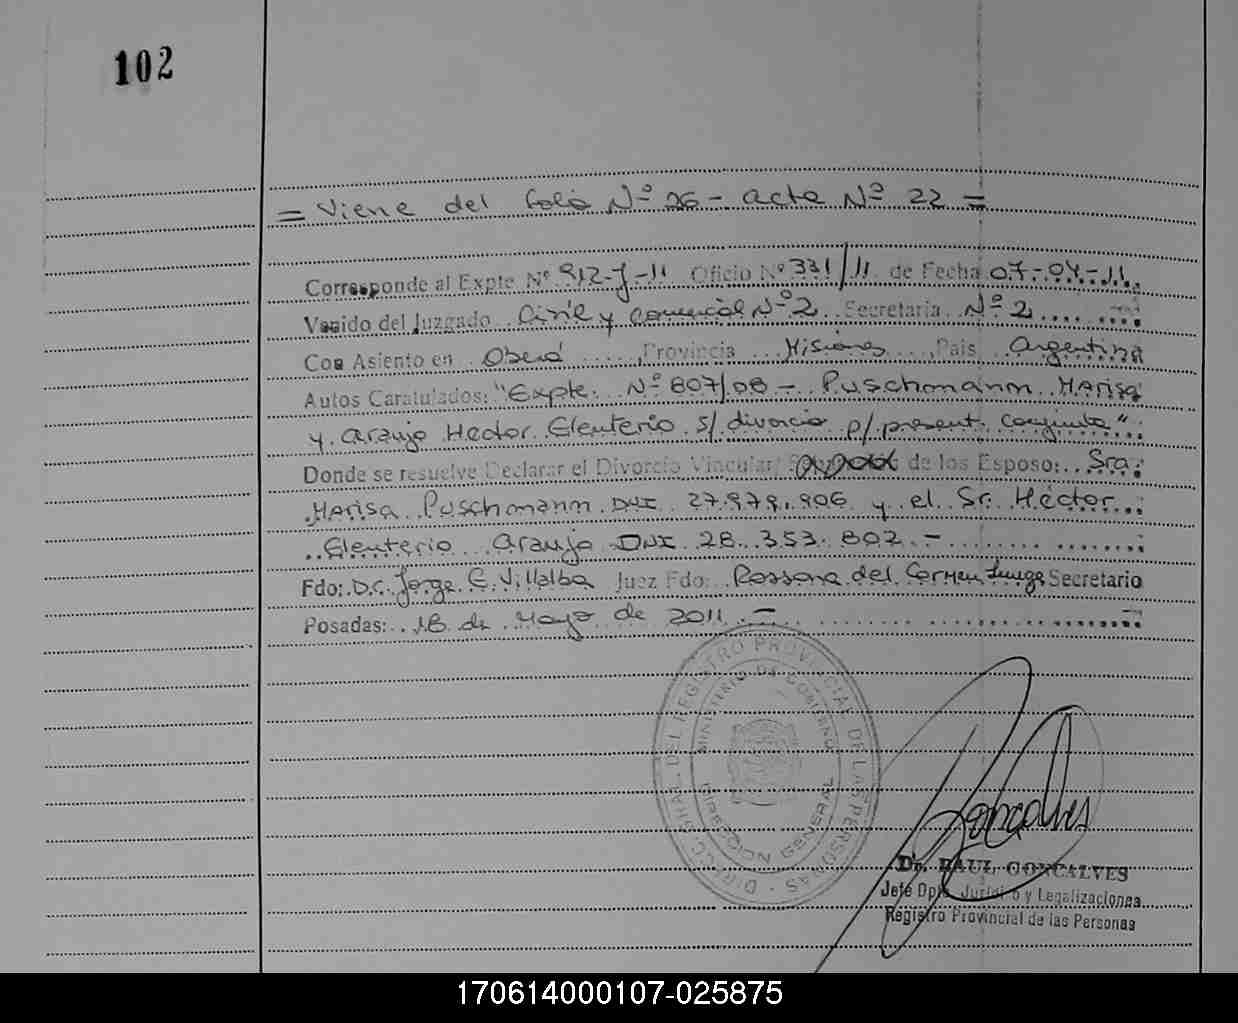 102
= Viene del Folio Nº 26 - acta Nº 22 =
Corresponde al Expte Nº 912-J-11 Oficio Nº 331/11 de Fecha 07-04-11.
Venido del Juzgado Civil y Comercial Nº 2 Secretaria Nº 2
Con Asiento en Oberá, Provincia Misiones, Pais Argentina
Autos Caratulados: "Expte. Nº 807/08 - Puschmann Marisa
y Araujo Hector Eleuterio s/ divorcio p/ present. conjunta"
Donde se resuelve Declarar el Divorcio Vincular de los Esposo: Sra.
Marisa Puschmann DNI 27.979.906 y el Sr. Héctor
Eleuterio Araujo DNI 28.353.802.-
Fdo: Dr. Jorge E. Villalba Juez Fdo: Rossana del Carmen Secretario
Posadas: 18 de Mayo de 2011.-
DIRECC. GRAL. DEL REGISTRO PROVINCIAL DE LAS PERSONAS
MINISTERIO DE GOBIERNO
DIRECCION GENERAL
Goncalves
Dr. RAUL GONCALVES
Jefe Dpto. Jurídico y Legalizaciones
Registro Provincial de las Personas
170614000107-025875